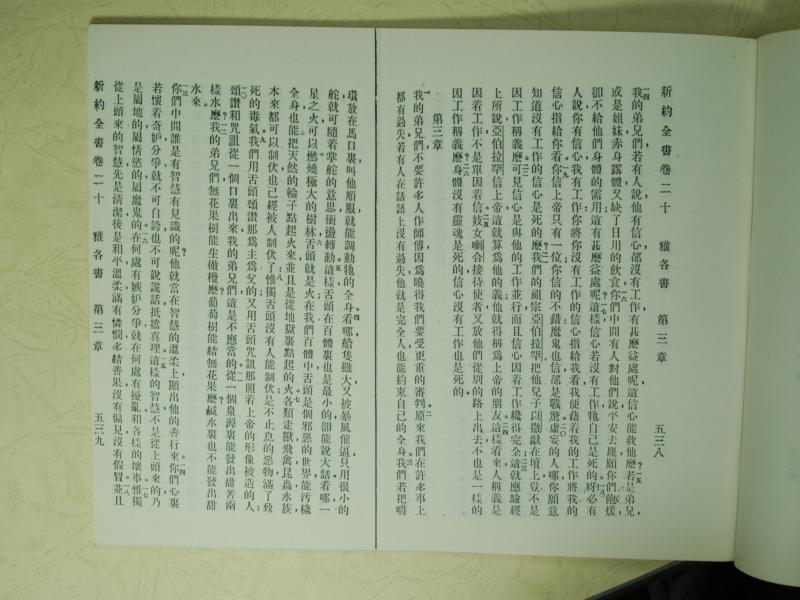 新約全書卷二十　雅各書　第三章　五三八
我的弟兄們若有人說他有信心卻沒有工作有甚麼益處呢這信心能救他麼若是弟兄
或是姐妹赤身露體又缺了日用的飲食你們中間有人對他們說平安去罷願你們飽煖
卻不給他們身體的需用這有甚麼益處呢這樣信心若沒有工作牠自己是死的呀必有
人說你有信心我有工作你將你沒有工作的信心指給我看我便藉着我的工作將我的
信心指給你看你信上帝只有一位你信的不錯魔鬼也信卻是戰驚虛妄的人哪你願意
知道沒有工作的信心是死的麼我們的祖宗亞伯拉罕把他兒子以撒獻在壇上豈不是
因工作稱義麼可見信心是與他的工作並行而且信心因着工作纔得完全這就應驗經
上所說亞伯拉罕信上帝這就算爲他的義他就得稱爲上帝的朋友這樣看來人稱義是
因着工作不是單因着信妓女喇合接待使者又放他們從別的路上出去不也是一樣的
因工作稱義麼身體沒有靈魂是死的信心沒有工作也是死的
第三章
我的弟兄們不要許多人作師傅因爲曉得我們要受更重的審判原來我們在許多事上
都有過失若有人在話語上沒有過失他就是完全人也能約束自己的全身我們若把嚼
環放在馬口裏叫他順服就能調動牠的全身看哪船隻雖大又被暴風催逼只用很小的
舵就可隨着掌舵的意思衝撞轉動這樣舌頭在百體裏也是最小的卻能說大話看哪一
星之火可以燃燒極大的樹林舌頭就是火在我們百體中舌頭是個邪惡的世界能汚穢
全身也能把天然的輪子點起火來並且是從地獄裏點起的火各類走獸飛禽昆蟲水族
本來都可以制伏也已經被人制伏了惟獨舌頭沒有人能制伏是不止息的惡物滿了致
死的毒氣我們用舌頭頌讚那爲主爲父的又用舌頭咒詛那照着上帝的形像被造的人
頌讚和咒詛從一個口裏出來我的弟兄們這是不應當的從一個泉源裏能發出甜苦兩
樣水麼我的弟兄們無花果樹能生橄欖麼葡萄樹能結無花果麼鹹水裏也不能發出甜
水來
你們中間誰是有智慧有見識的呢他就當在智慧的溫柔上顯出他的善行來你們心裏
若懷着奇妒分爭就不可自誇也不可說謊話抵擋真理這樣的智慧不是從上頭來的乃
是屬地的屬情慾的屬魔鬼的在何處有嫉妒分爭就在何處有擾亂和各樣的壞事惟獨
從上頭來的智慧先是清潔後是和平溫柔滿有憐憫多結善果沒有偏見沒有假冒並且
新約全書卷二十　雅各書　第三章　五三九